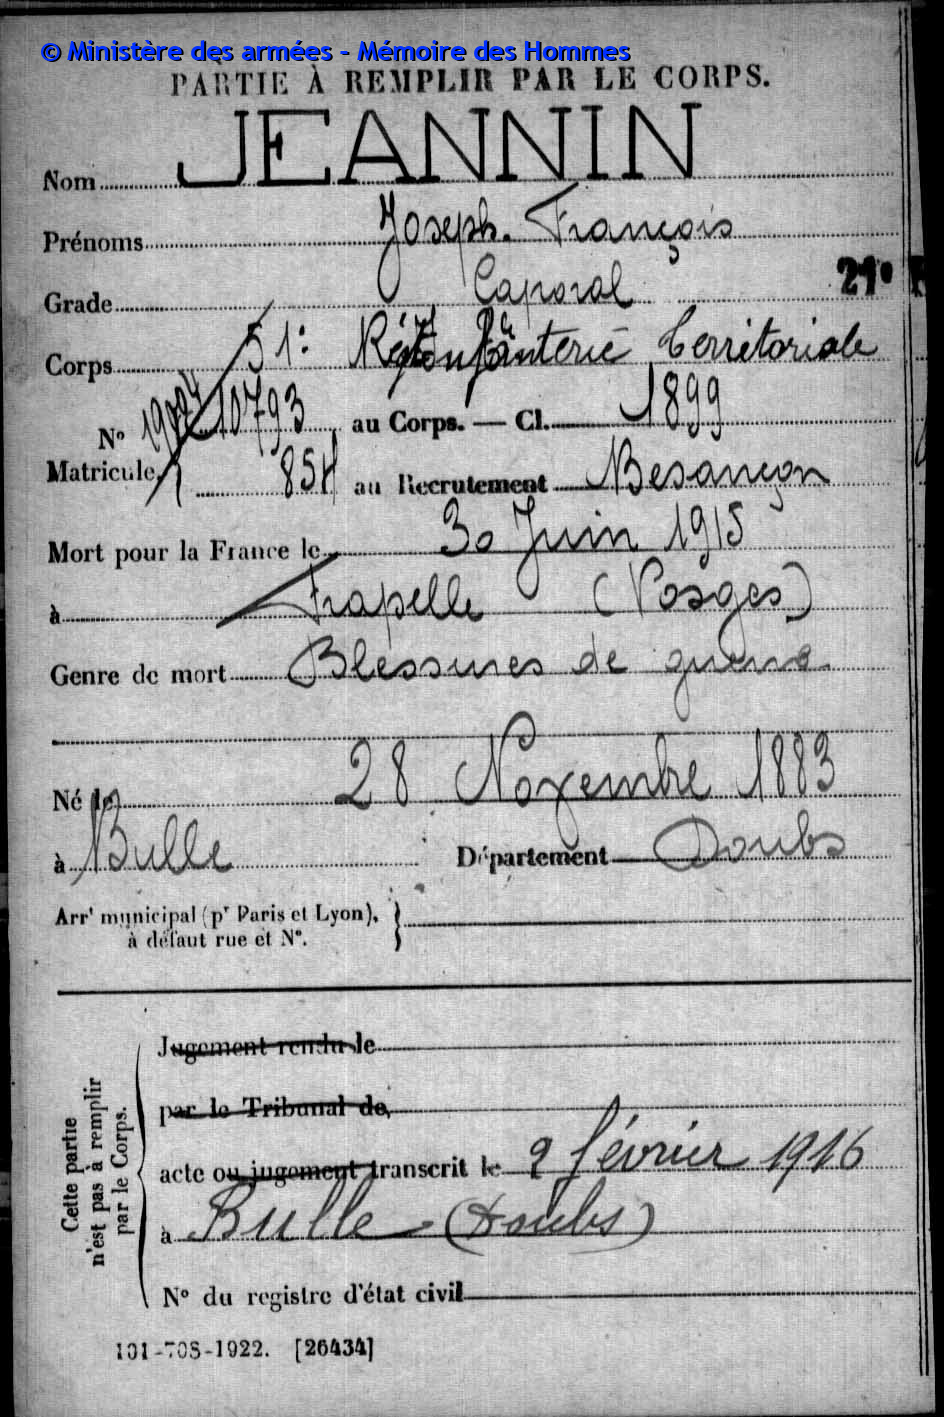 © Ministère des armées - Mémoire des Hommes
PARTIE À REMPLIR PAR LE CORPS.
Nom JEANNIN
Prénoms Joseph. François
Grade Caporal 21e
Corps 51e Rég d'Infanterie Territoriale
No 10793 au Corps. — Cl. 1899
Matricule. 854 au Recrutement Besançon
Mort pour la France le 30 Juin 1915
à Frapelle (Vosges)
Genre de mort Blessures de guerre
Né le 28 Novembre 1883
à Bulle Département Doubs
Arrt municipal (pr Paris et Lyon),
à défaut rue et No.
Cette partie
n'est pas à remplir
par le Corps.
Jugement rendu le
par le Tribunal de
acte ou jugement transcrit le 9 février 1916
à Bulle (Doubs)
No du registre d'état civil
101-708-1922. [26434]